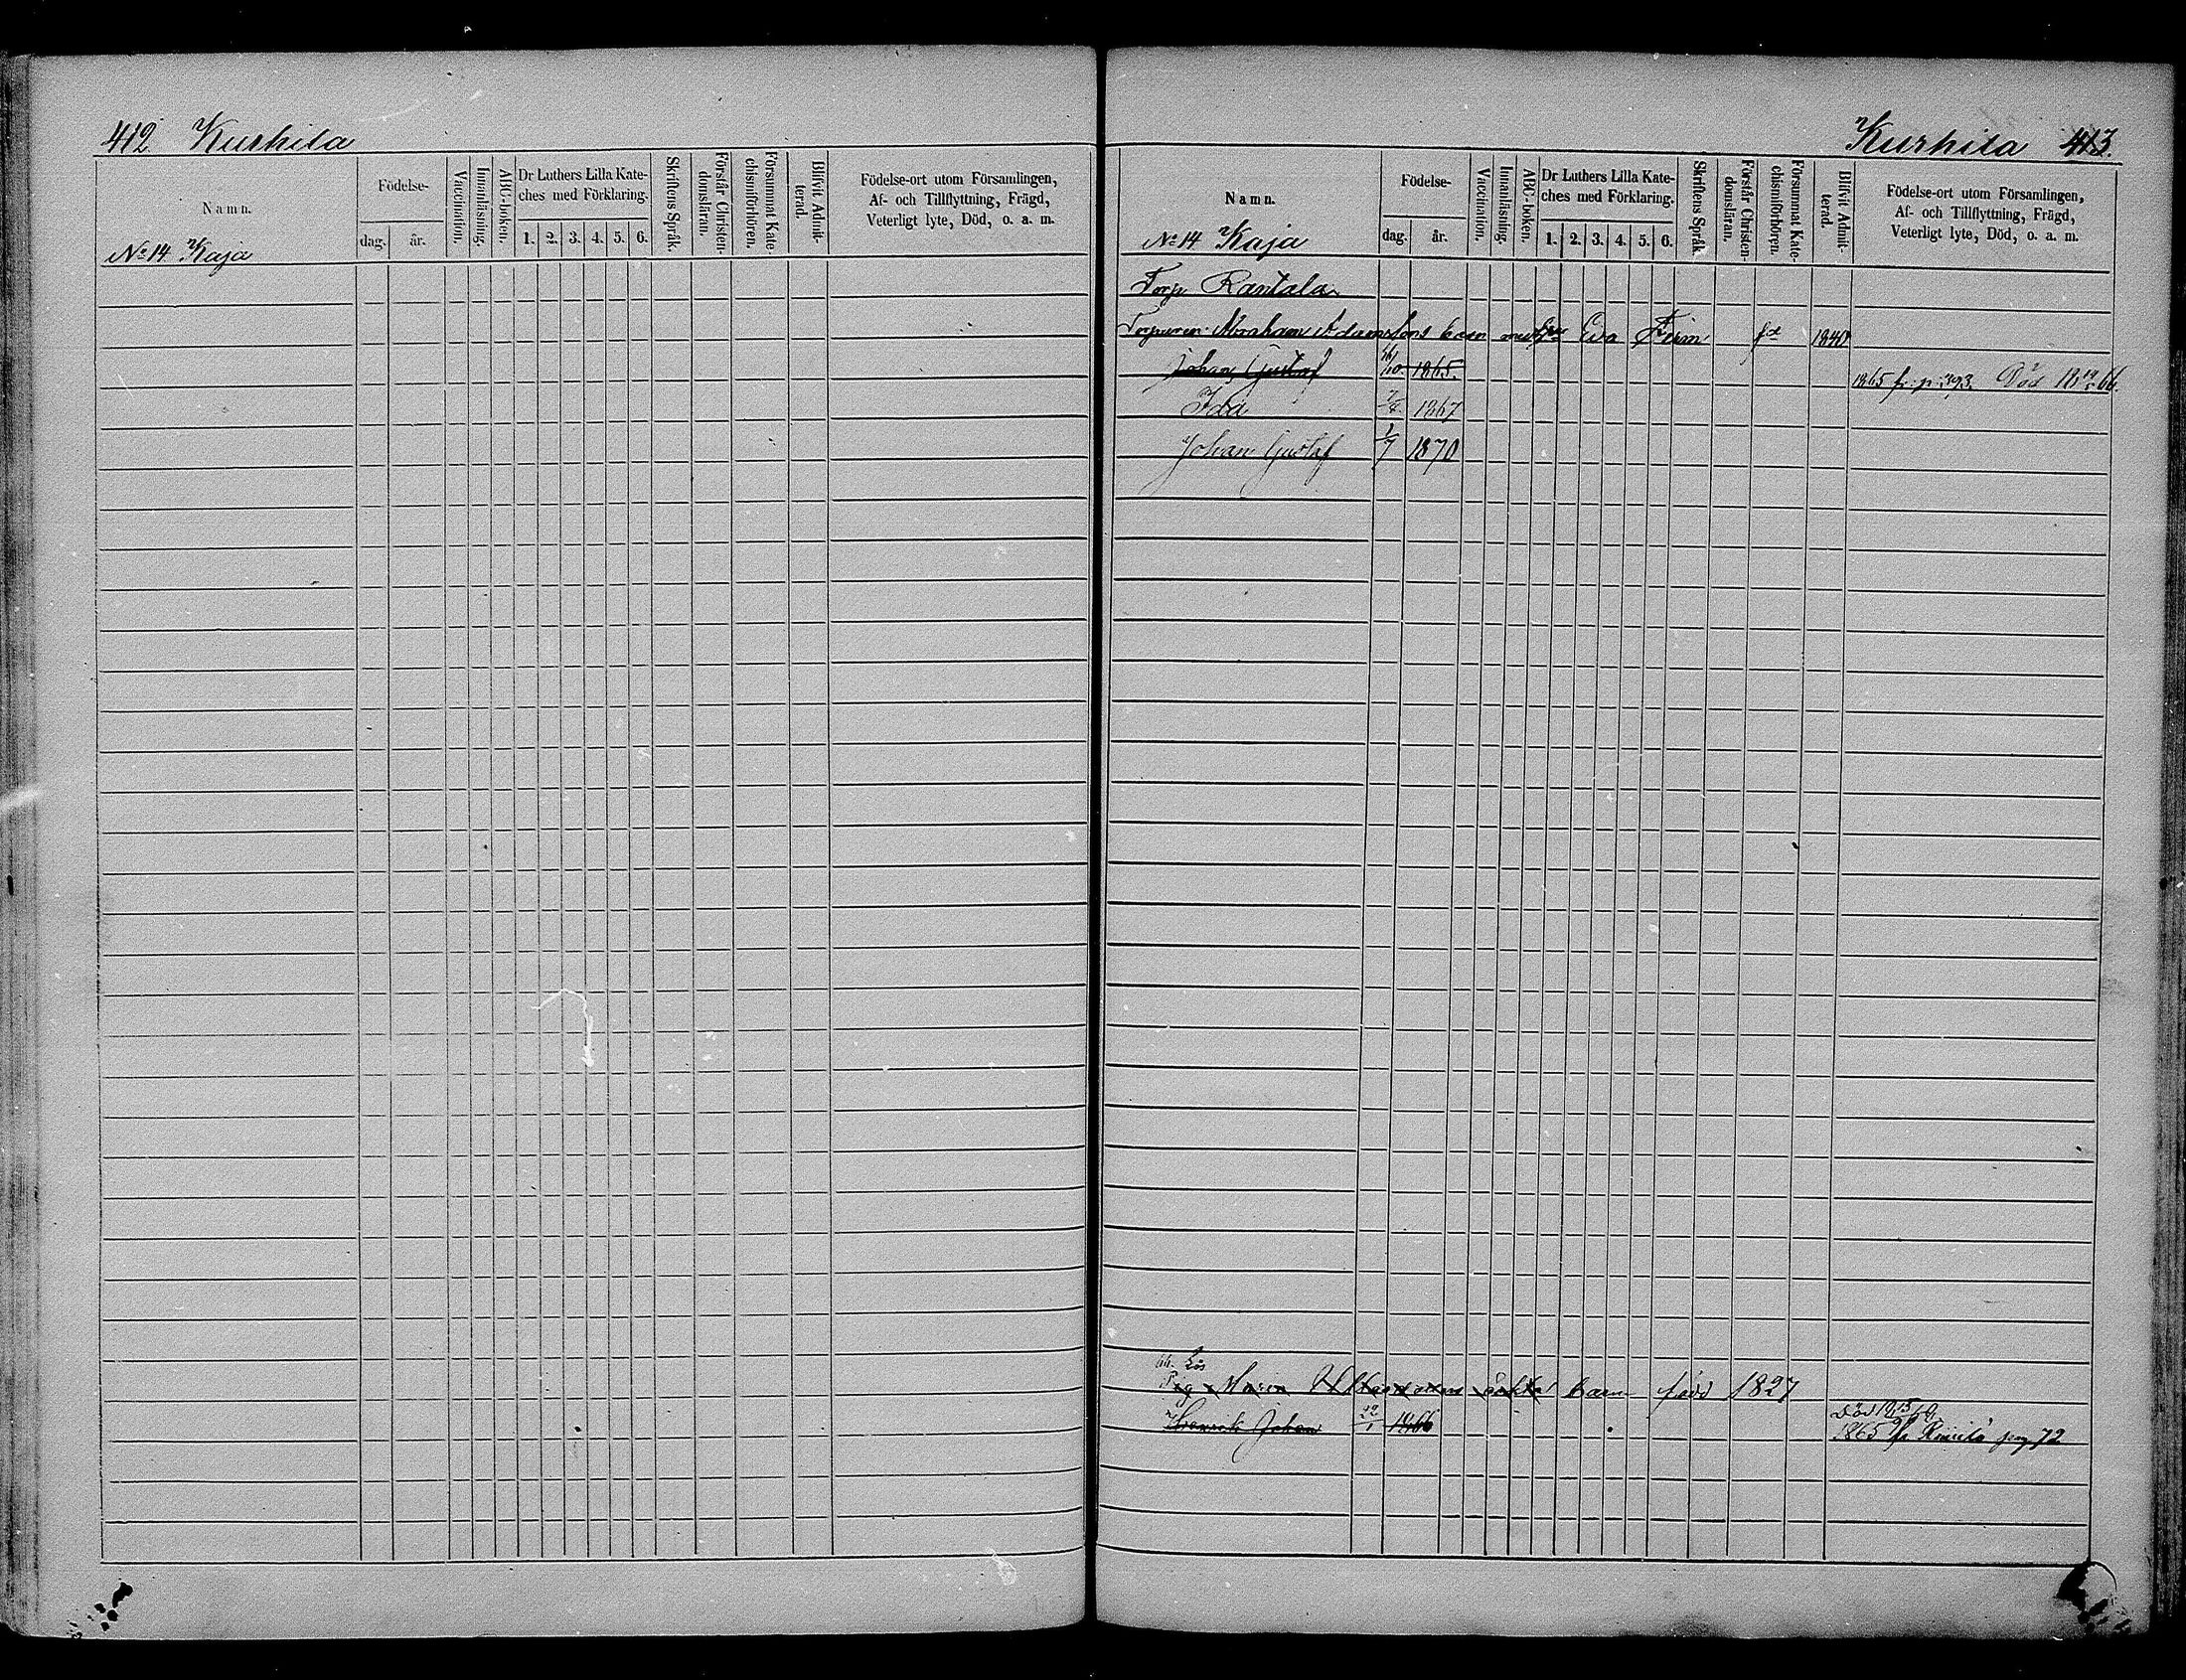 412 Kurhila
Namn.
Födelse-
dag. år.
Vaccination.
Innanläsning.
ABC-boken.
Dr Luthers Lilla Kate-
ches med Förklaring.
1. 2. 3. 4. 5. 6.
Skriftens Språk.
Förstår Christen-
domsläran.
Försummat Kate-
chismiförhören.
Blifvit Admit-
terad.
Födelse-ort utom Församlingen,
Af- och Tillflyttning, Frägd,
Veterligt lyte, Död, o. a. m.
No 14 Kaja
Kurhila 413.
Namn.
Födelse-
dag. år.
Vaccination.
Innanläsning.
ABC-boken.
Dr Luthers Lilla Kate-
ches med Förklaring.
1. 2. 3. 4. 5. 6.
Skriftens Språk
Förstår Christen-
domsläran.
Försummat Kate-
chismiförhören.
Blifvit Admit-
terad.
Födelse-ort utom Församlingen,
Af- och Tillflyttning, Frägd,
Veterligt lyte, Död, o. a. m.
No 14 Kaja
Torp Rantala
Torparen Abraham Adamssons barn med Eva fd 1840
Johan Gustaf 10. 1865. 1865 fr. p. 393. Död 66.
Ida 1867
Johan Gustaf 1/7 1870
Lis
Pig Maria barn född 1827
Henrik Johan 22/1 1866 Död
1865 fr pag 72